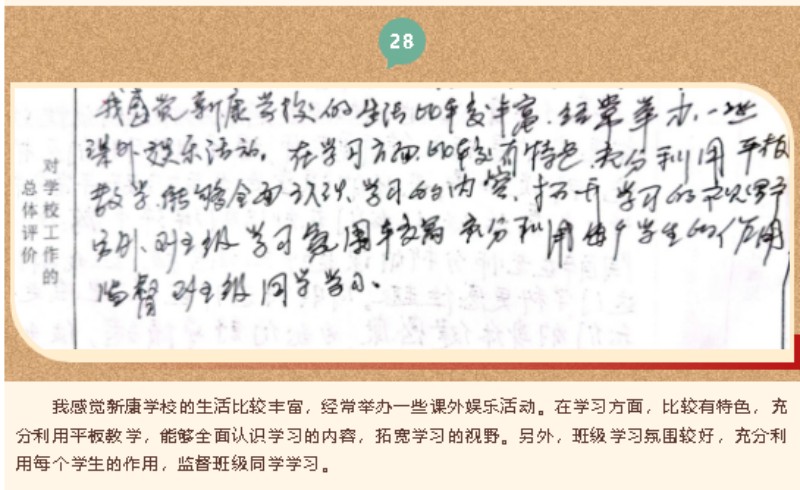 28
对学校工作的
总体评价
我感觉新康学校的生活比较丰富,经常举办一些
课外娱乐活动。在学习方面,比较有特色,充分利用平板
教学,能够全面认识学习的内容,拓宽学习的视野
另外,班级学习氛围较高,充分利用每个学生的作用
监督班级同学学习。
我感觉新康学校的生活比较丰富,经常举办一些课外娱乐活动。在学习方面,比较有特色,充
分利用平板教学,能够全面认识学习的内容,拓宽学习的视野。另外,班级学习氛围较好,充分利
用每个学生的作用,监督班级同学学习。